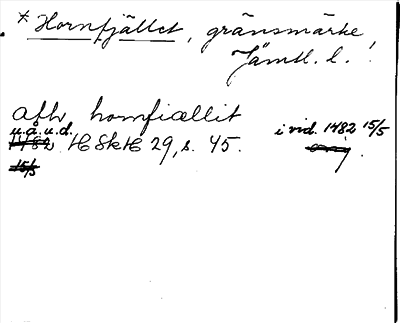 * Hornfjället, gränsmärke
Jämtl. l. !
aff hornfiællit
u.å.u.d. i vid. 1482 15/5
1482 HSkH 29, s. 45.
15/5